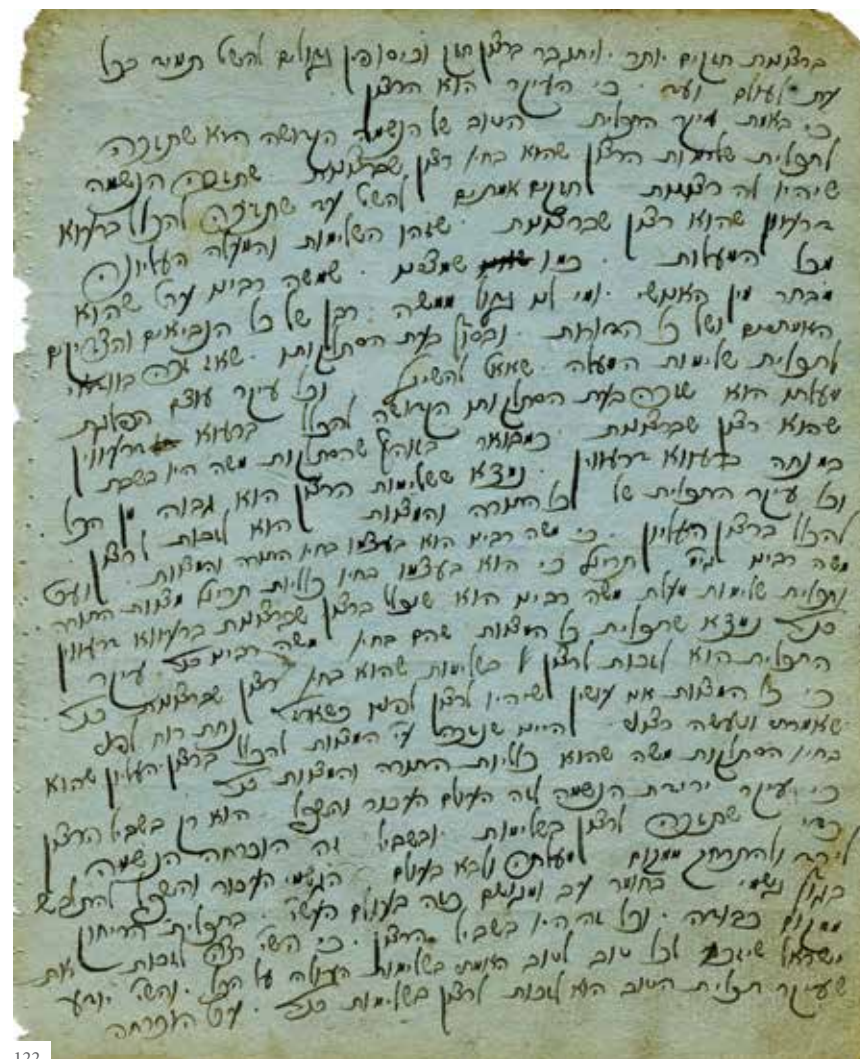 ברצונות חזקים יותר. ויתגבר ברצון חזק וכיסופין גדולים להש״ת תמיד בכל
עת לעולם ועד. כי העיקר הוא הרצון
כי באמת עיקר התכלית הטוב של הנשמה הקדושה הוא שתזכה
לתכלית שלימות הרצון שהוא בחי׳ רצון שברצונות. שתזכה הנשמה
שיהיו לה רצונות חזקים אמתים להש״ת עד שתזכה להכלל ברעוא
דרעוין שהוא רצון שברצונות. שזהו השלימות והמעלה העליונה
מכל המעלות. כמו שמצינו. שמשה רבינו ע״ה שהוא
מבחר מין האנושי. ומי לנו גדול ממשה. רבן של כל הנביאים והצדיקים
האמתיים ושל כל הדורות. ובסוף בעת הסתלקותו. שאז זכה בוודאי
לתכלית שלימות המעלה. שא״א להשיגו. וכל עיקר עוצם הפלגת
מעלתו הוא שזכה בעת הסתלקותו הקדושה להכלל ברעוא דרעווין
שהוא רצון שברצונות. כמבואר בזוה״ק שהסתלקות משה היו בשבת
במנחה ברעווא דרעווין. נמצא ששלימות הרצון הוא גבוה מן הכל
וכל עיקר התכלית של כל התורה והמצוות הוא לזכות לרצון.
להכלל ברצון העליון. כי משה רבינו הוא בעצמו בחי׳ התורה והמצוות.
משה רבינו תרי״ג כי הוא בעצמו בחי׳ כלליות תרי״ג מצוות התורה
ותכלית שלימות מעלת משה רבינו הוא שנכלל ברצון שברצונות ברעווא דרעווין
כנ״ל נמצא שתכלית כל המצוות שהם בחי׳ משה רבינו כנ״ל. עיקר
התכלית הוא לזכות לרצון בשלימות שהוא בחי׳ רצון שברצונות כנ״ל
כי כל המצוות אנו עושין שיהיו לרצון לפניו נחת רוח לפני
שאמרתי ונעשה רצוני. היינו שנזכה ע״י המצוות להכלל ברצון העליון שהוא
בחי׳ הסתלקות משה שהוא כלליות התורה והמצוות כנ״ל
כי עיקר ירידת הנשמה לזה העולם העכור והשפל הוא רק בשביל הרצון
כדי שתזכה לרצון בשלימות. ובשביל זה הוכרחה הנשמה
לירד ולהתרחק ממקום מעלתה ולבא בעולם הגשמי העכור והשפל להתלבש
בגוף גשמי בחומר עב ומגושם כזה בעולם העשי׳. בתכלית הריחוק
ממקום כבודה. וכל זה היו בשביל הרצון. כי הש״י רצה לזכות את
ישראל שיזכו לכל טוב לטוב האמתי בשלימות העולה על הכל. והש״י יודע
שעיקר תכלית הטוב הוא לזכות לרצון בשלימות כנ״ל. הוכרחה
122